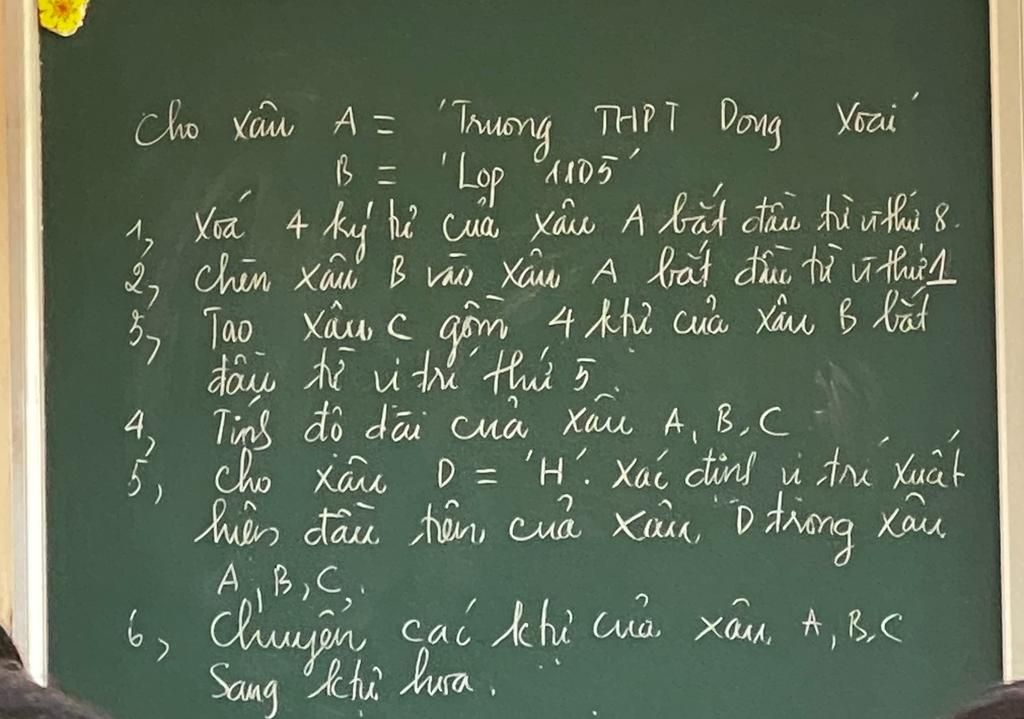 Cho xâu A = 'Truong THPT Dong Xoai'
B = 'Lop 11D5'
1, Xoá 4 ký tự của xâu A bắt đầu từ vị thứ 8.
2, Chèn xâu B vào xâu A bắt đầu từ vị thứ 1
3, Tạo xâu C gồm 4 khtự của xâu B bắt
đầu từ vị trí thứ 5.
4, Tính độ dài của xâu A, B, C
5, Cho xâu D = 'H'. Xác định vị trí xuất
hiện đầu tiên của xâu D trong xâu
A, B, C.
6, Chuyển các khtự của xâu A, B, C
Sang khtự hoa.